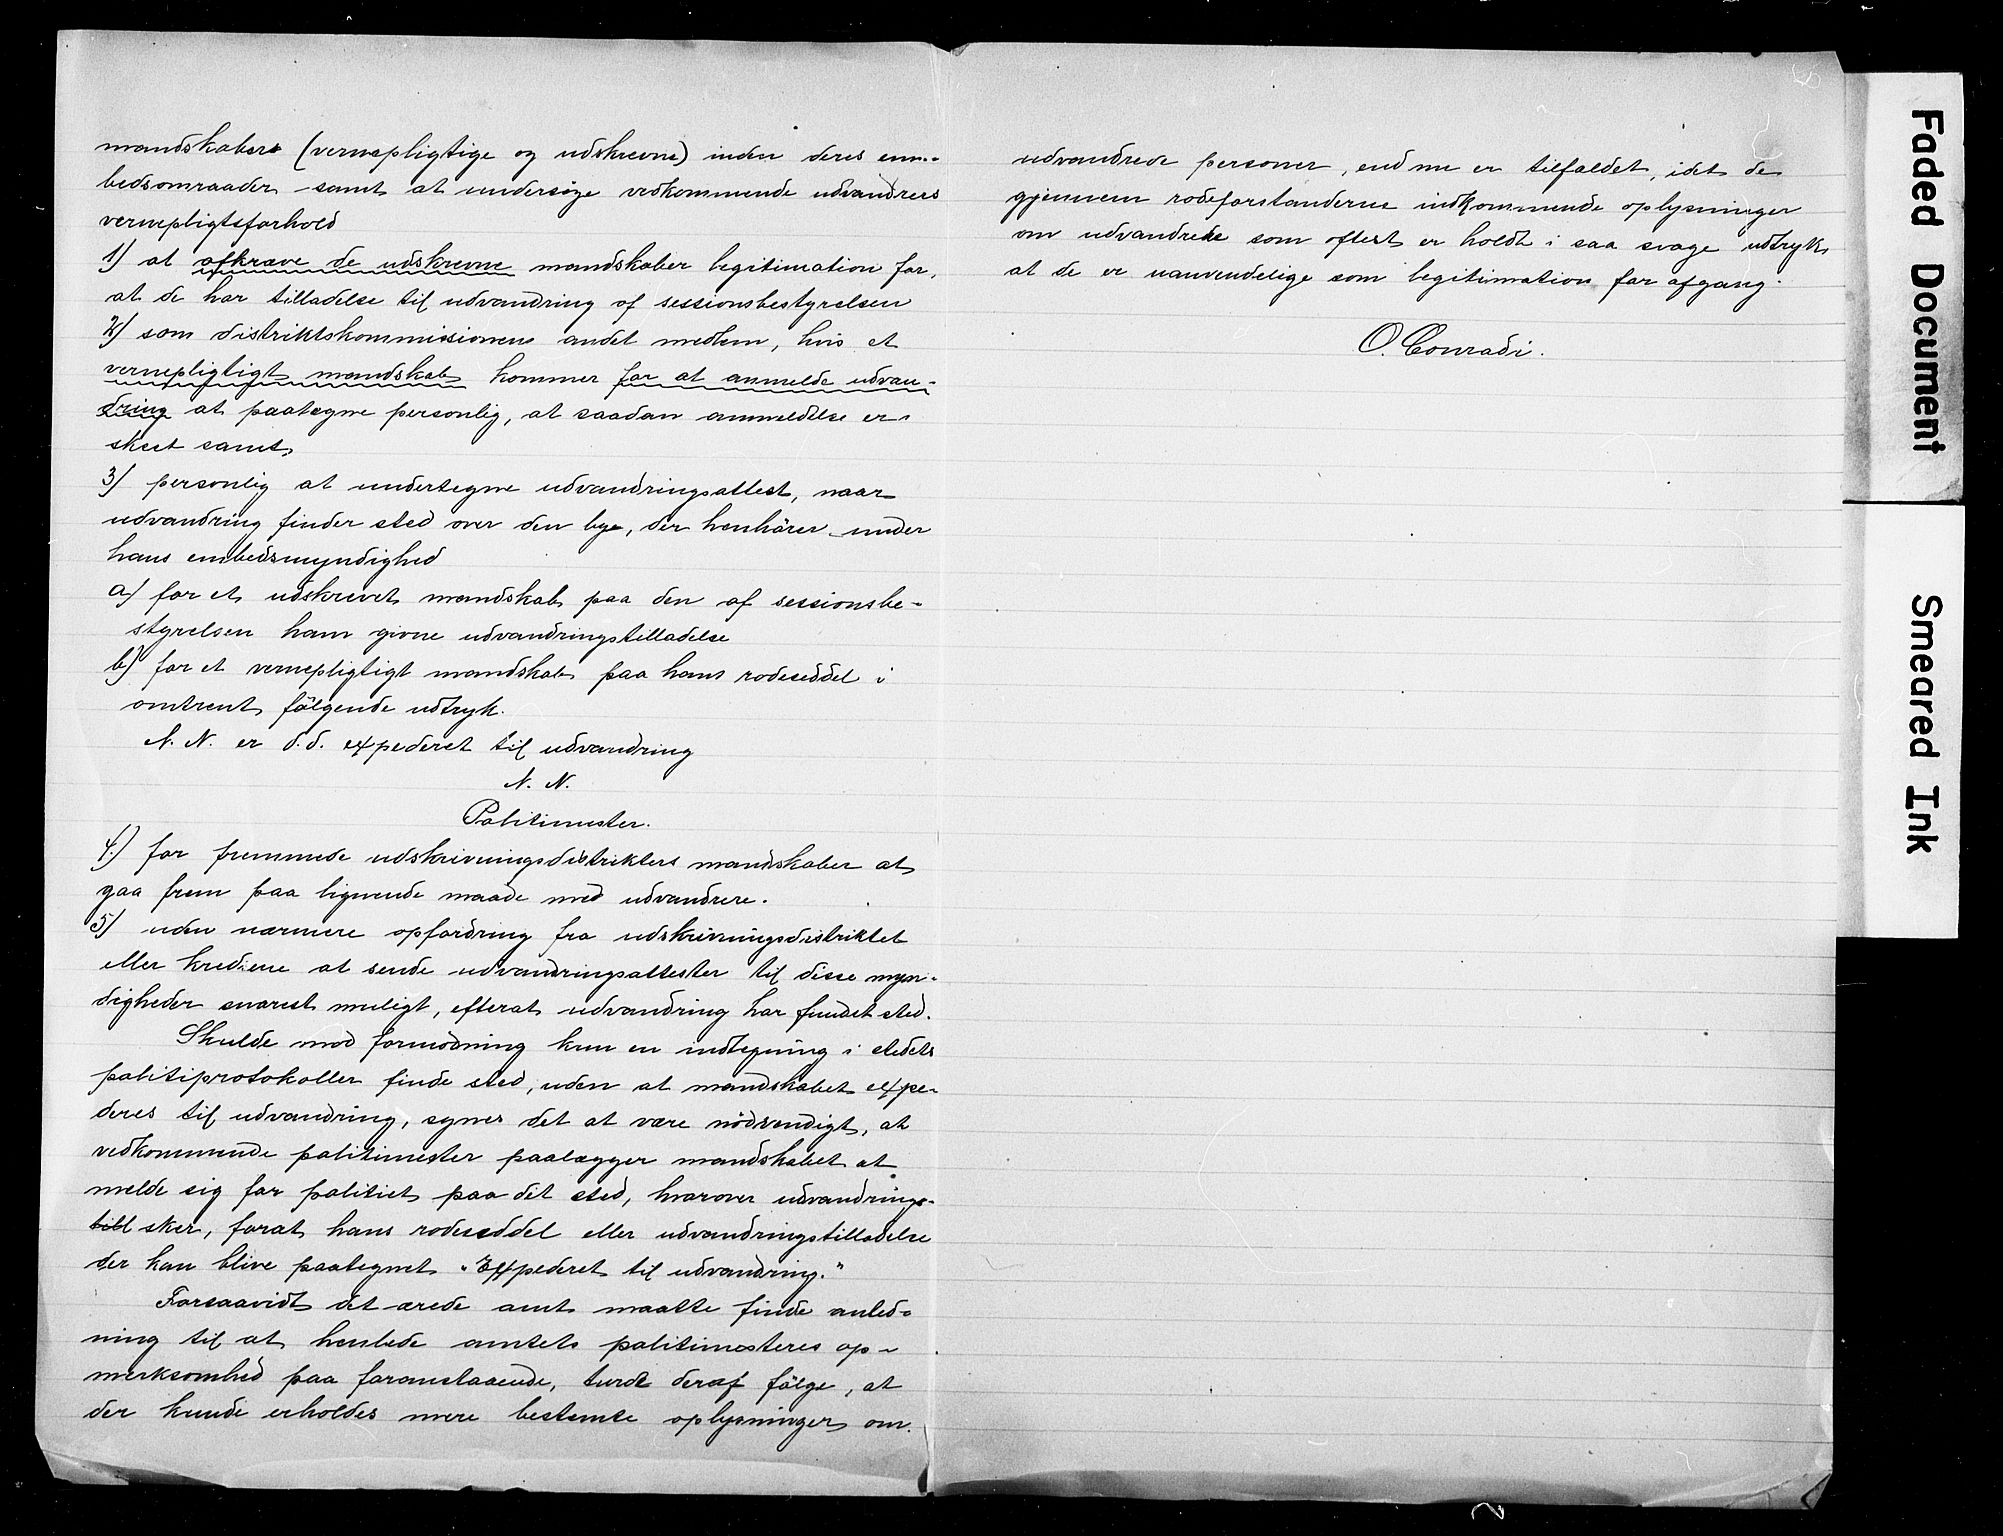 mandskabers (vernepligtige og udskrevne) inden deres em-
bedsomraader samt at undersøge vedkommende udvandrers
vernepligtsforhold
1) at afkræve de udskrevne mandskaber legitimation for,
at de har tilladelse til udvandring af sessionsbestyrelsen
2) som distriktskommissionens andet medlem, hvis et
vernepligtigt mandskab kommer for at anmelde udvan-
dring at paategne personlig, at saadan anmeldelse er
skeet samt
3) personlig at undertegne udvandringsattest, naar
udvandring finder sted over den bye, der henhörer under
hans embedsmyndighed
a) for et udskrevet mandskab paa den af sessionsbe-
styrelsen ham givne udvandringstilladelse
b) for et vernepligtigt mandskab paa hans rodeseddel i
omtrent fölgende udtryk.
N. N. er d.d. expederet til udvandring
N. N.
Politimester.
4.) for fremmede udskrivningsdistrikters mandskaber at
gaa frem paa lignende maade med udvandrere.
5) uden nærmere opfordring fra udskrivningsdistriktet
eller kredsene at sende udvandringsattester til disse myn-
digheder snarest muligt, efterat udvandring har fundet sted.
Skulde mod formodning kun en indtegning i stedets
politiprotokoller finde sted, uden at mandskabet expe-
deres til udvandring, synes det at være nödvendigt, at
vedkommende politimester paalægger mandskabet at
melde sig for politiet paa det sted, hvorover udvandrings-
till sker, forat hans rodeseddel eller udvandringstilladelse
der kan blive paategnet "Expederet til udvandring."
Forsaavidt det ærede amt maatte finde anled-
ning til at henlede amtets politimesteres op-
merksomhed paa foranstaaende, turde deraf fölge, at
der kunde erholdes mere bestemte oplysninger om
udvandrede personer, end nu er tilfældet, idet de
gjennem rodeforstanderne indkommende oplysninger
om udvandrede som oftest er holdt i saa svage udtryk,
at de er uanvendelige som legitimation for afgang.
O. Conradi.
Faded Document
Smeared Ink